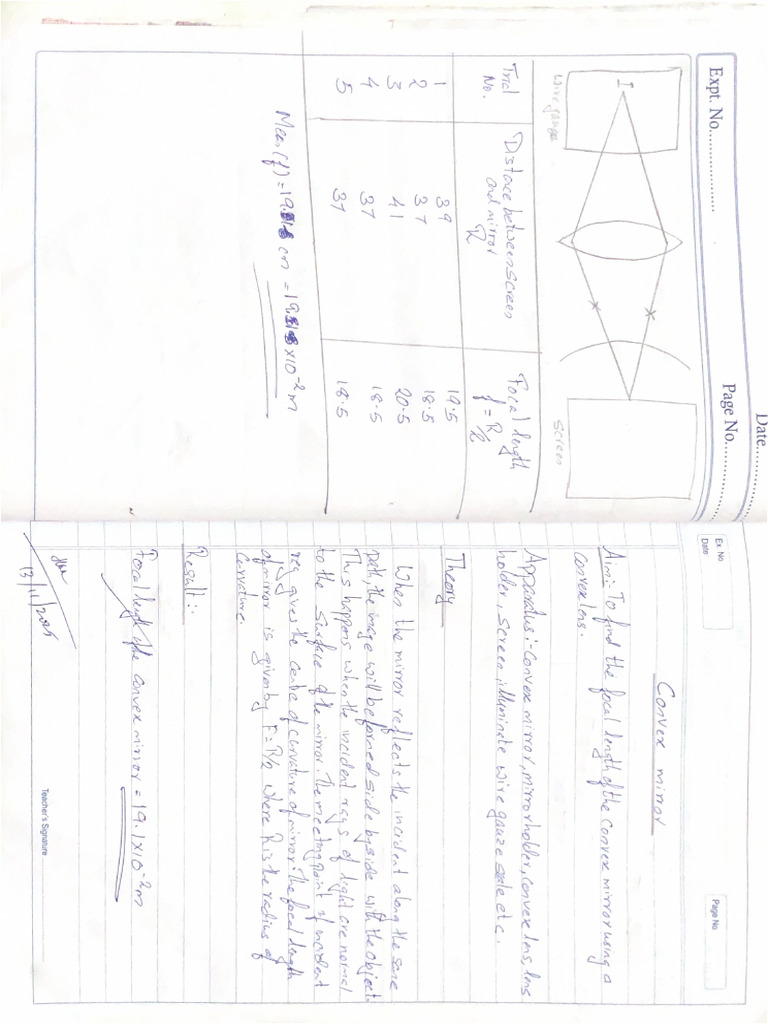 Date..........
Expt. No................
Page No................
I
wire gauge
screen
Trial No.
Distance between screen and mirror R
Focal length f = R/2
1 39 19.5
2 37 18.5
3 41 20.5
4 37 18.5
5 37 18.5
Ex No
Date
Page No
Convex mirror
Aim:- To find the focal length of the convex mirror using a
convex lens.
Apparatus:- Convex mirror, mirror holder, convex lens, lens
holder, screen, illuminate wire gauze scale etc.
Theory
When the mirror reflects the incident along the same
path, the image will be formed side by side with the object.
This happens when the incident rays of light are normal
to the surface of the mirror. The meeting point of incident
ray gives the centre of curvature of mirror. The focal length
of mirror is given by F = R/2 where R is the radius of
curvature.
Result:-
Focal length of the convex mirror = 19.1 x 10⁻² m
13/11/2025
Teacher's Signature